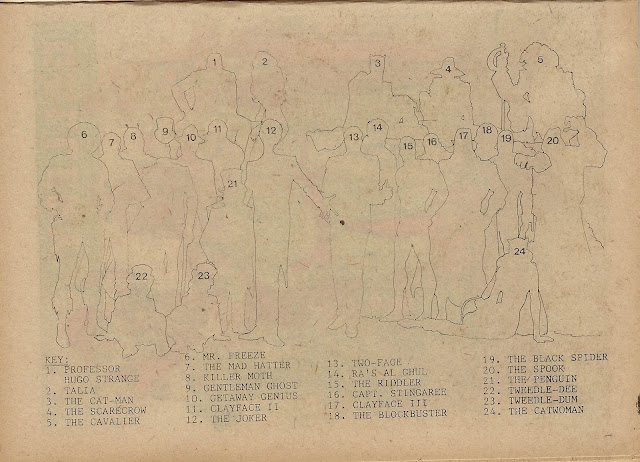 1
2
3
4
5
6
7
8
9
10
11
12
13
14
15
16
17
18
19
20
21
22
23
24
KEY:
1. PROFESSOR
HUGO STRANGE
2. TALIA
3. THE CAT-MAN
4. THE SCARECROW
5. THE CAVALIER
6. MR. FREEZE
7. THE MAD HATTER
8. KILLER MOTH
9. GENTLEMAN GHOST
10. GETAWAY GENIUS
11. CLAYFACE II
12. THE JOKER
13. TWO-FACE
14. RA'S AL GHUL
15. THE RIDDLER
16. CAPT. STINGAREE
17. CLAYFACE III
18. THE BLOCKBUSTER
19. THE BLACK SPIDER
20. THE SPOOK
21. THE PENGUIN
22. TWEEDLE-DEE
23. TWEEDLE-DUM
24. THE CATWOMAN